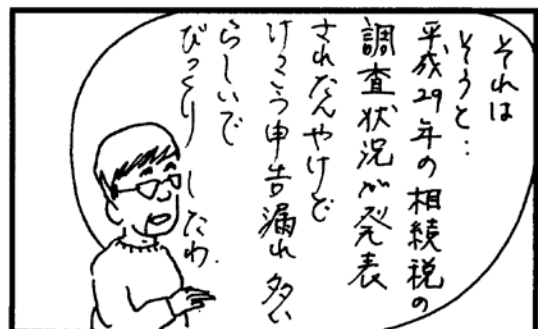 それは
そうと…
平成29年の相続税の
調査状況が発表
されたんやけど
けっこう申告漏れ多い
らしいで
びっくりしたわ.